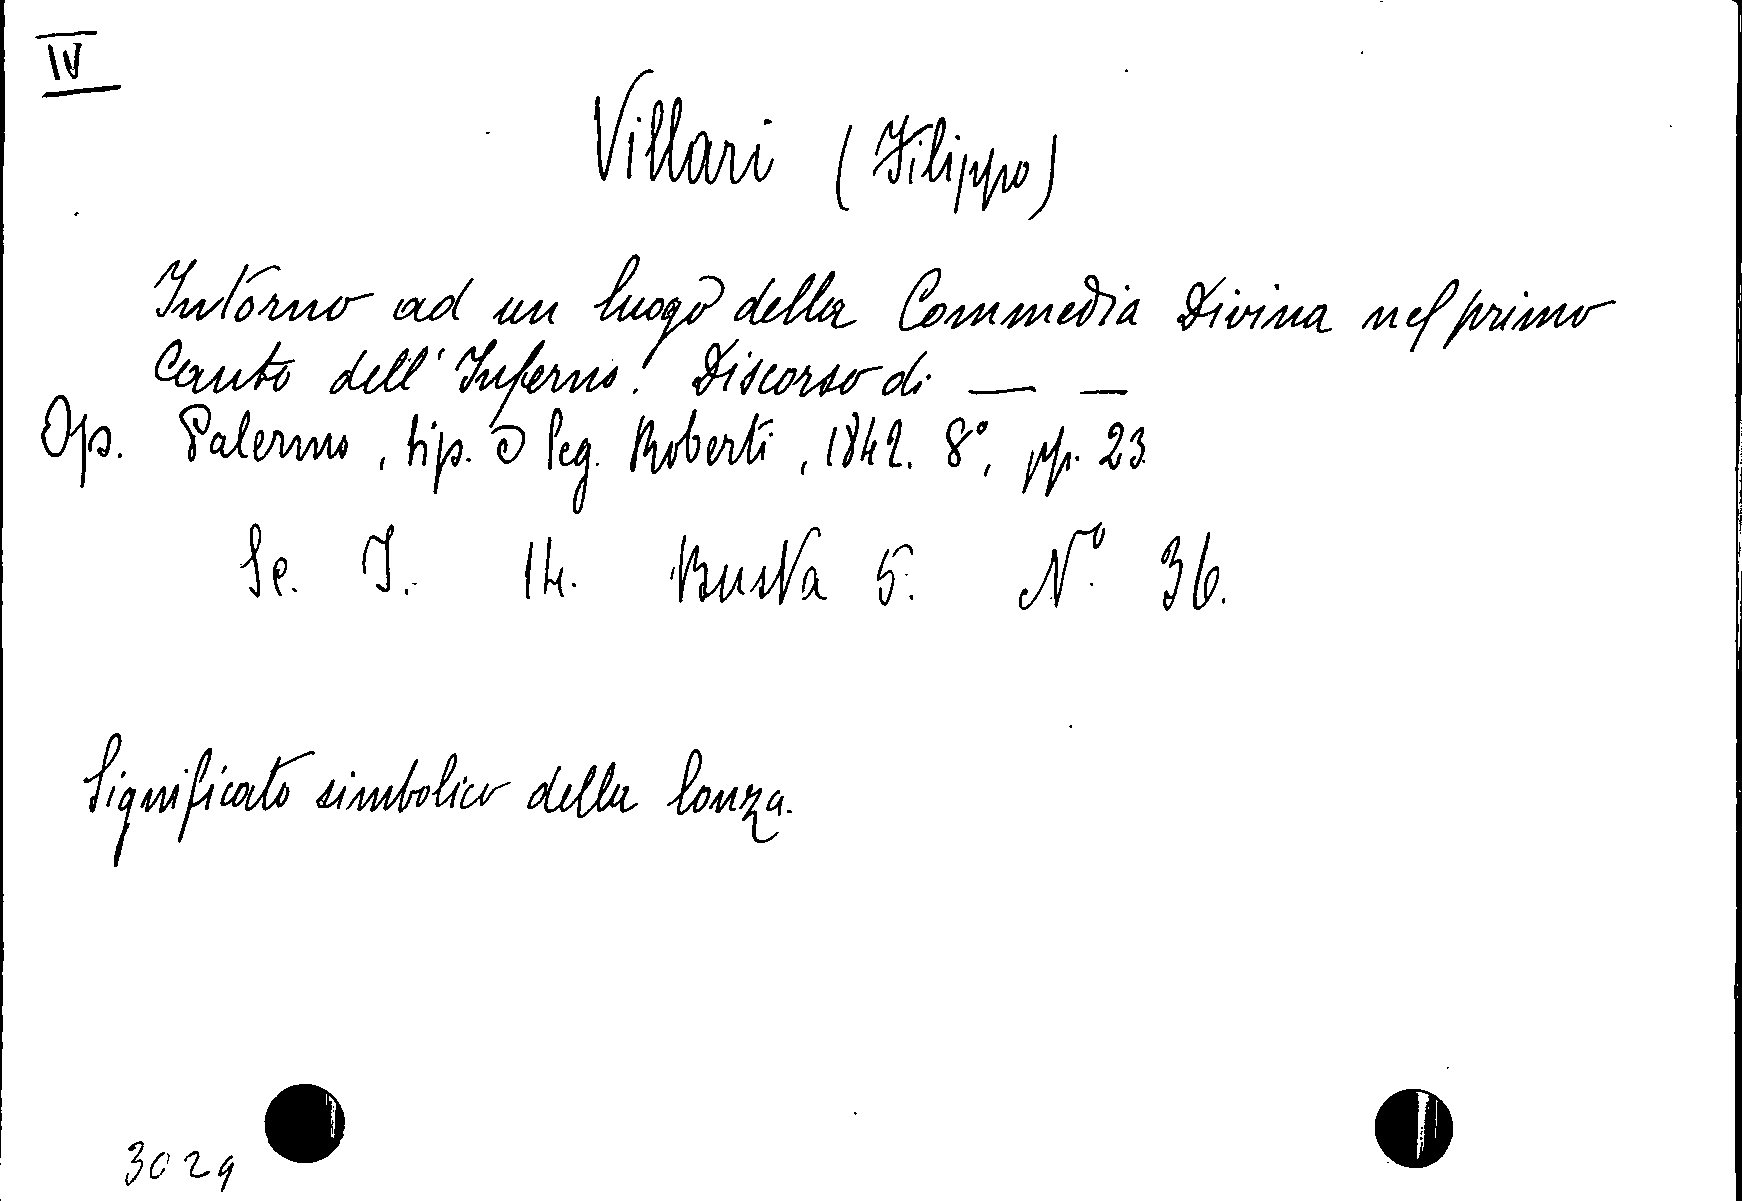 IV
Villari (Filippo)
Intorno ad un luogo della Commedia Divina nel primo
Canto dell'Inferno. Discorso di — —
Op. Palermo, tip. e leg. Roberti, 1842. 8°, pp. 23
Se. I. 14. Busta 5. N.º 36.
Significato simbolico della lonza.
3029